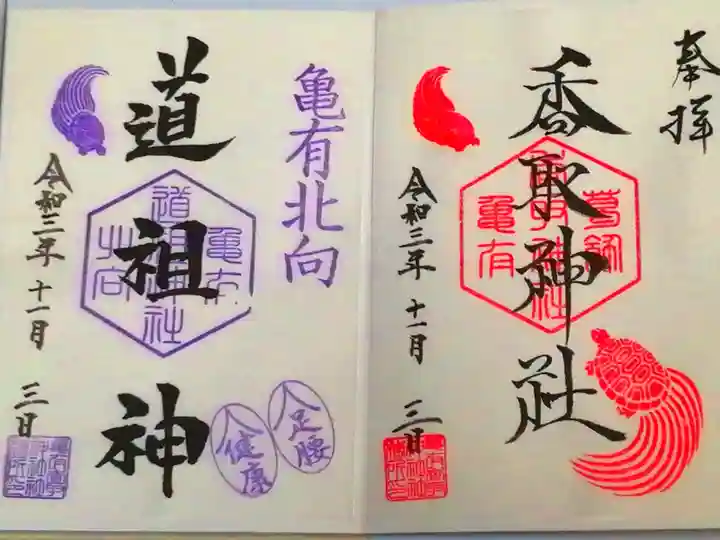 奉拝
香取神社
葛飾
亀有
令和三年十一月三日
亀有北向
道祖神
亀有
北向
令和三年十一月三日
足腰
健康